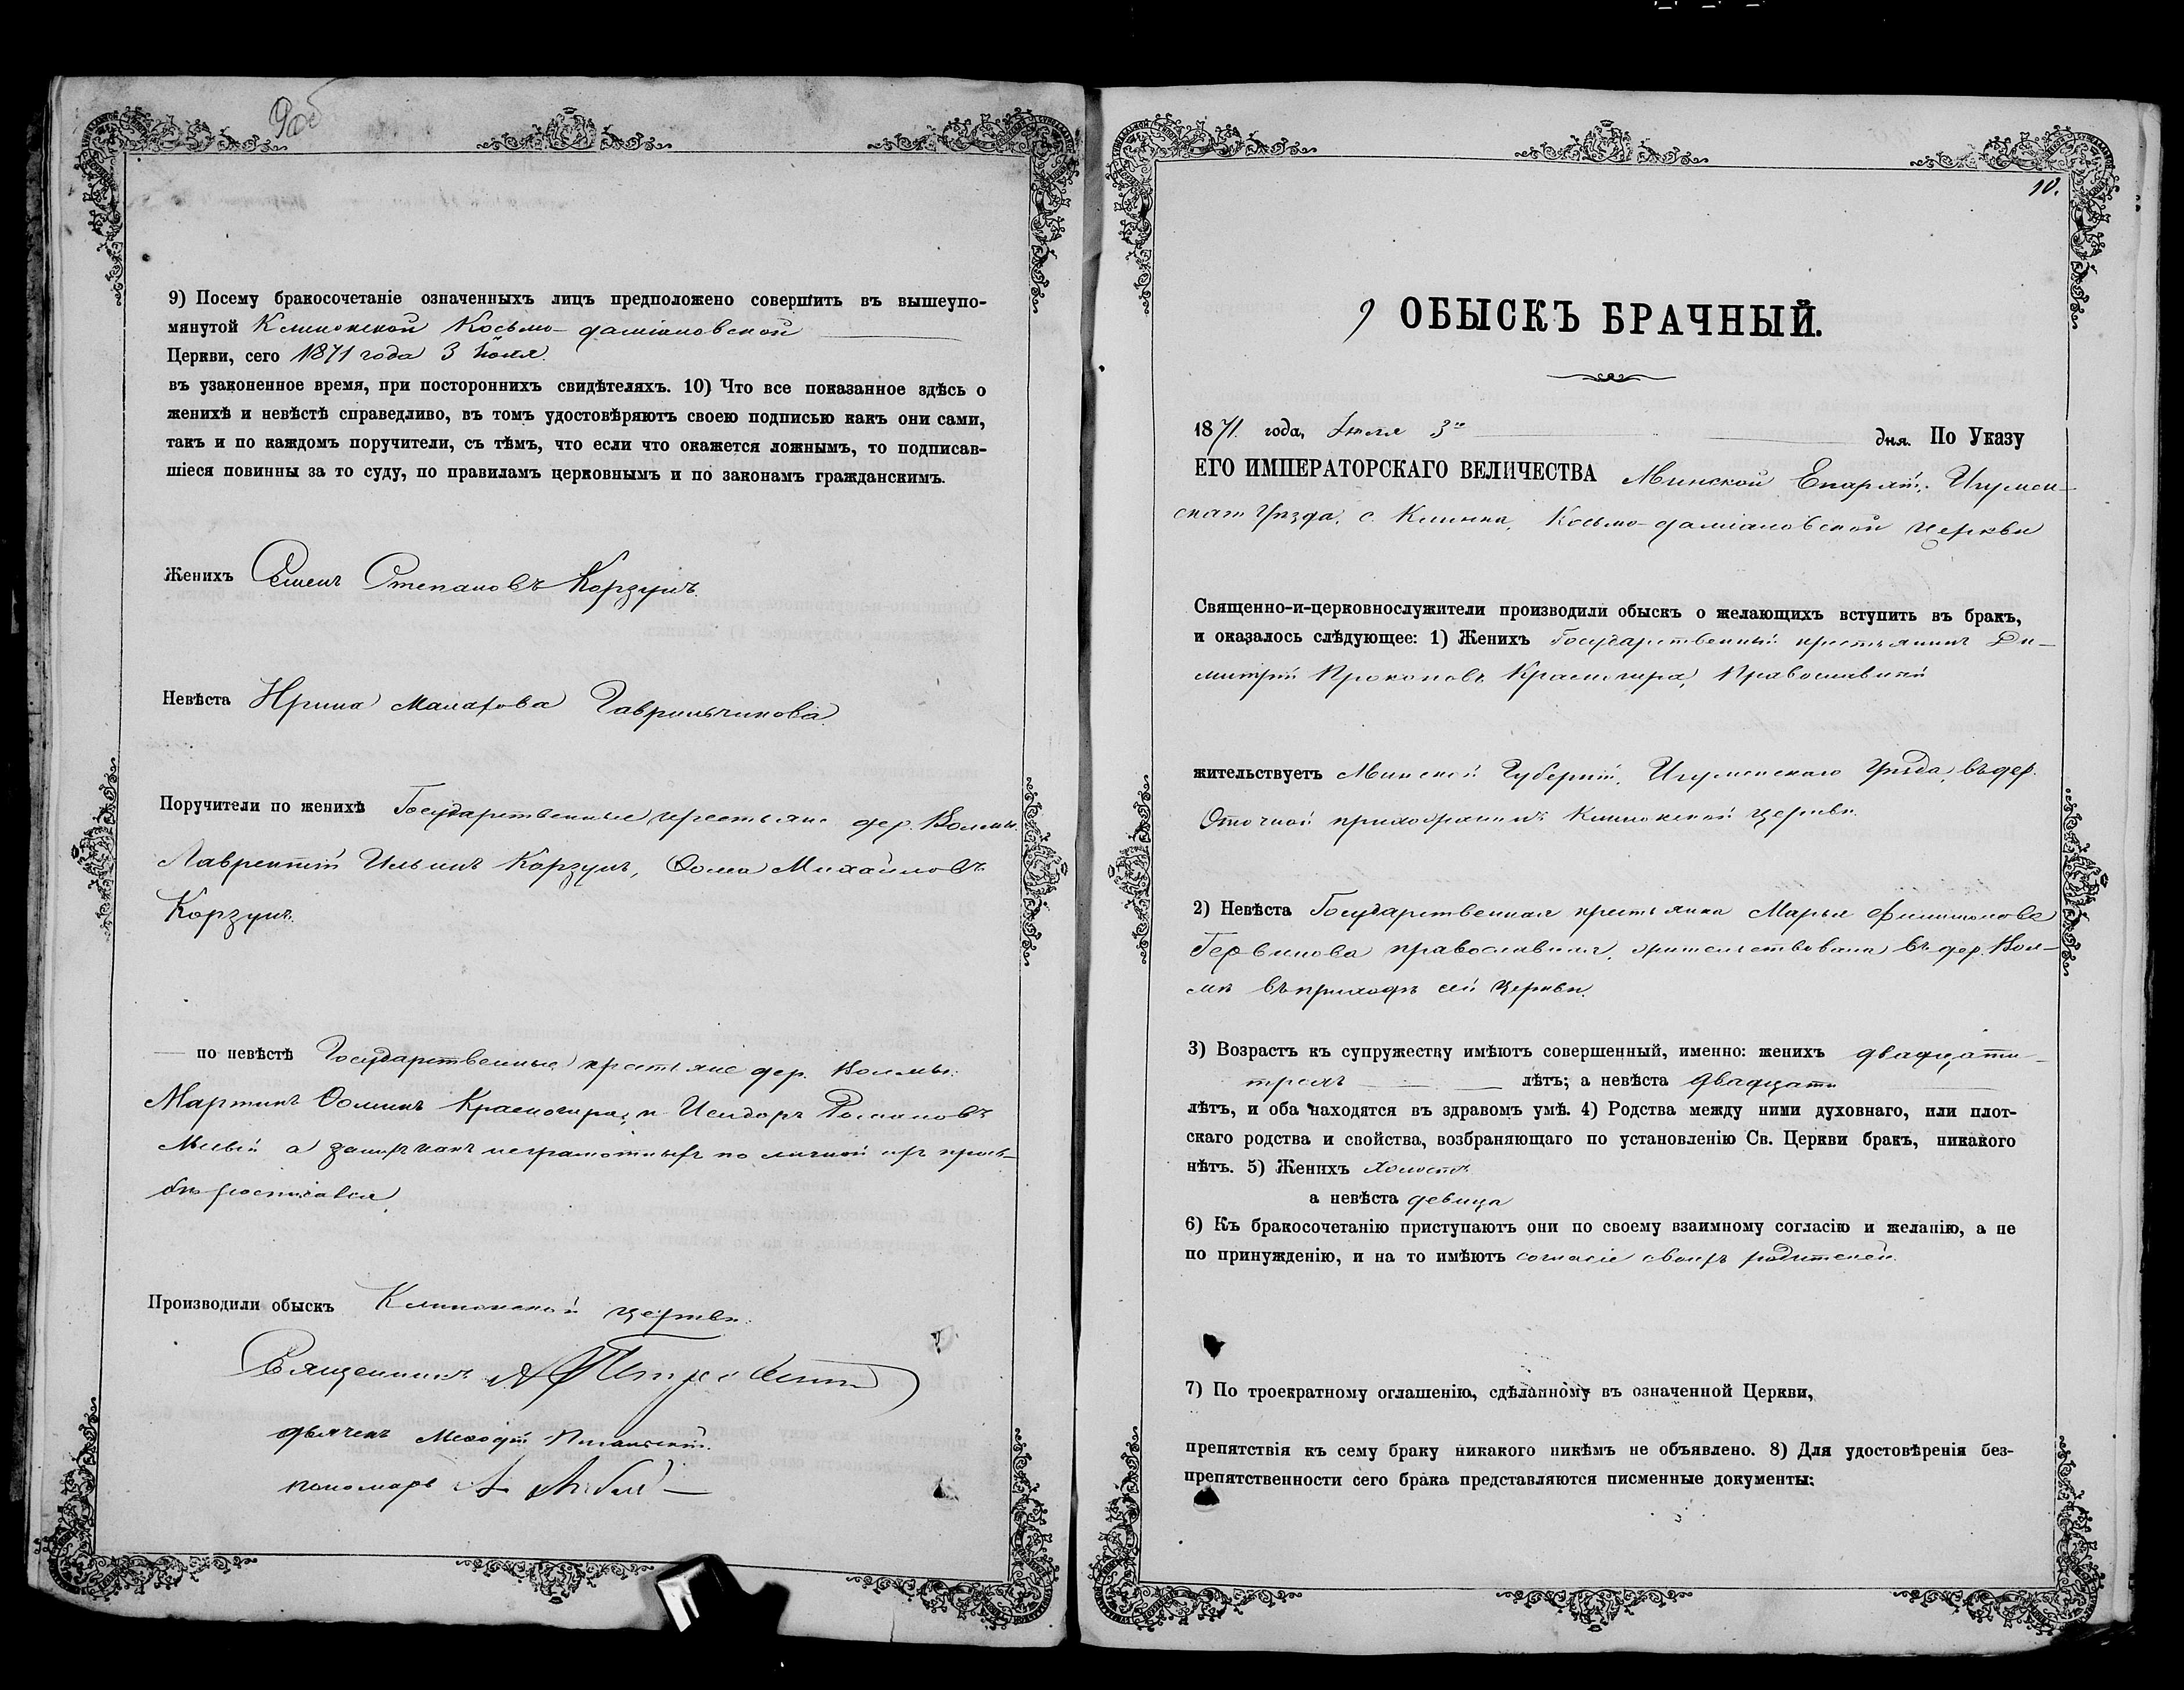 9об
9) Посему бракосочетаніе означенныхъ лицъ предположено совершить въ вышеупо-
мянутой Клинокской Косьмо-даміановской
Церкви, сего 1871 года 3 Іюля.
въ узаконенное время, при постороннихъ свидѣтеляхъ. 10) Что все показанное здѣсь о
женихѣ и невѣстѣ справедливо, въ томъ удостовѣряютъ своею подписью какъ они сами,
такъ и по каждомъ поручители, съ тѣмъ, что если что окажется ложнымъ, то подписав-
шіеся повинны за то суду, по правиламъ церковнымъ и по законамъ гражданскимъ.
Женихъ Семенъ Степановъ Корзунъ.
Невѣста Ирина Малахова Гаврильчикова
Поручители по женихѣ Государственные крестьяне дер. Волмы
Лаврентій Ильинъ Корзунъ, Ѳома Михайловъ
Корзунъ.
— по невѣстѣ Государственные крестьяне дер. Волмы.
Мартинъ Ѳоминъ Красногира, и Исидоръ Романовъ
а за нихъ какъ неграмотныхъ по личной ихъ прось-
бѣ росписался
Производили обыскъ Клинокской церкви.
Священникъ
дьячекъ Меѳодій
пономарь А.
10.
9 ОБЫСКЪ БРАЧНЫЙ.
1871 года, Іюля 3го дня. По Указу
ЕГО ИМПЕРАТОРСКАГО ВЕЛИЧЕСТВА Минской Епархіи, Игумен-
скаго Уѣзда, с. Клинка, Косьмо-даміановской церкви
Священно-и-церковнослужители производили обыскъ о желающихъ вступить въ бракъ,
и оказалось слѣдующее: 1) Женихъ Государственный крестьянинъ Ди-
митрій Прокоповъ Красногира, Православный
жительствуетъ Минской Губерніи, Игуменскаго Уѣзда, въ дер.
Оточной прихожанинъ Клинокской церкви.
2) Невѣста Государственная крестьянка Марья Филимонова
православная, жительствовала въ дер. Вол-
мѣ въ приходѣ сей церкви.
3) Возрастъ къ супружеству имѣютъ совершенный, именно: женихъ двадцати
трехъ лѣтъ; а невѣста двадцати
лѣтъ, и оба находятся въ здравомъ умѣ. 4) Родства между ними духовнаго, или плот-
скаго родства и свойства, возбраняющаго по установленію Св. Церкви бракъ, никакого
нѣтъ. 5) Женихъ холостъ
а невѣста девица
6) Къ бракосочетанію приступаютъ они по своему взаимному согласію и желанію, а не
по принужденію, и на то имѣютъ согласіе своихъ родителей.
7) По троекратному оглашенію, сдѣланному въ означенной Церкви,
препятствія къ сему браку никакого никѣмъ не объявлено. 8) Для удостовѣренія без-
препятственности сего брака представляются писменные документы: